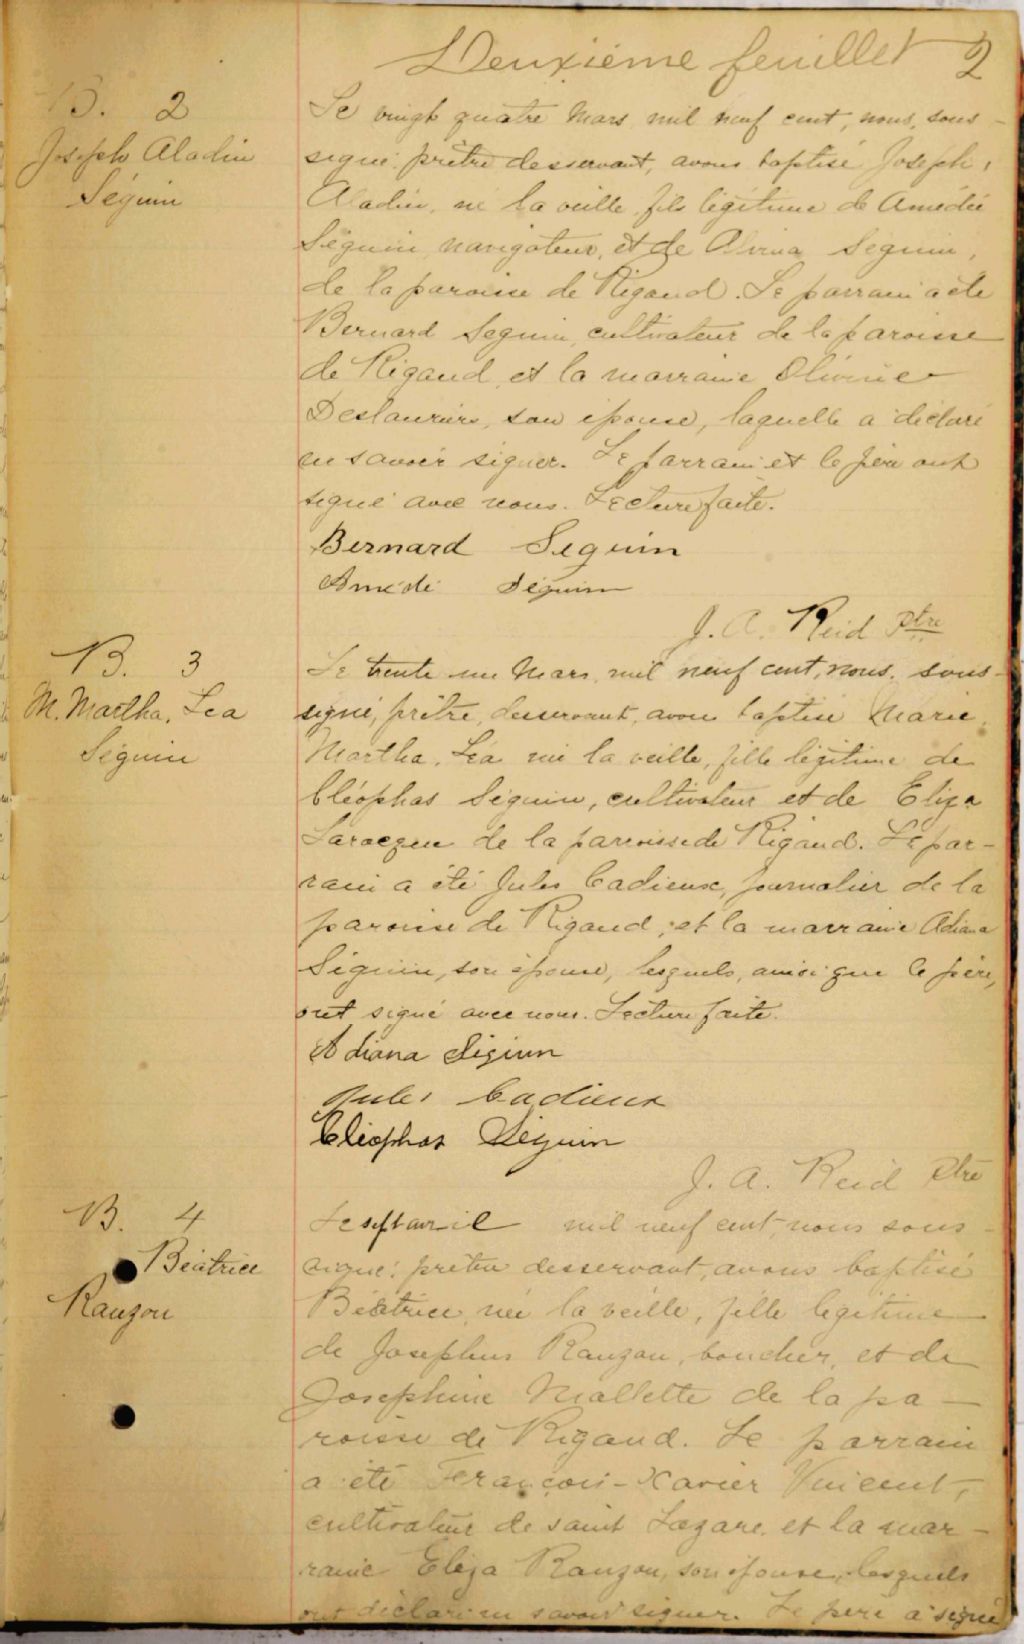 Deuxième feuillet 2
B. 2
Joseph Aladin
Séguin
Le vingt quatre Mars mil neuf cent, nous, sous-
signé, prêtre desservant, avons baptisé Joseph,
Aladin, né la veille, fils légitime de Amédée
Séguin, navigateur, et de Alvina Séguin,
de la paroisse de Rigaud. Le parrain a été
Bernard Seguin, cultivateur de la paroisse
de Rigaud, et la marraine
Deslauriers, son épouse, laquelle a déclaré
ne savoir signer. Le parrain et le père ont
signé avec nous. Lecture faite.
Bernard Seguin
Amédé Séguin
J. A. Reid Ptre
B. 3
M. Martha, Lea
Séguin
Le trente un Mars, mil neuf cent, nous, sous-
signé, prêtre, desservant, avons baptisé Marie,
Martha, Léa née la veille, fille légitime de
Cléophas Séguin, cultivateur et de Eliza
Larocque de la paroisse de Rigaud. Le par-
rain a été Jules Cadieux, journalier de la
paroisse de Rigaud, et la marraine Adiana
Séguin, son épouse, lesquels, ainsi que le père,
ont signé avec nous. Lecture faite.
Adiana Séguin
Jules Cadieux
Cléophas Séguin
J. A. Reid Ptre
B. 4
Béatrice
Ranzon
Le sept avril mil neuf cent nous sous-
signé, prêtre desservant, avons baptisé
Béatrice, née la veille, fille légitime
de Josephus Ranzon, boucher, et de
Josephine Mallette de la pa-
roisse de Rigaud. Le parrain
a été François-Xavier Vincent,
cultivateur de saint Lazare, et la mar-
raine Eliza Ranzon, son épouse, lesquels
ont déclaré ne savoir signer. Le père a signé